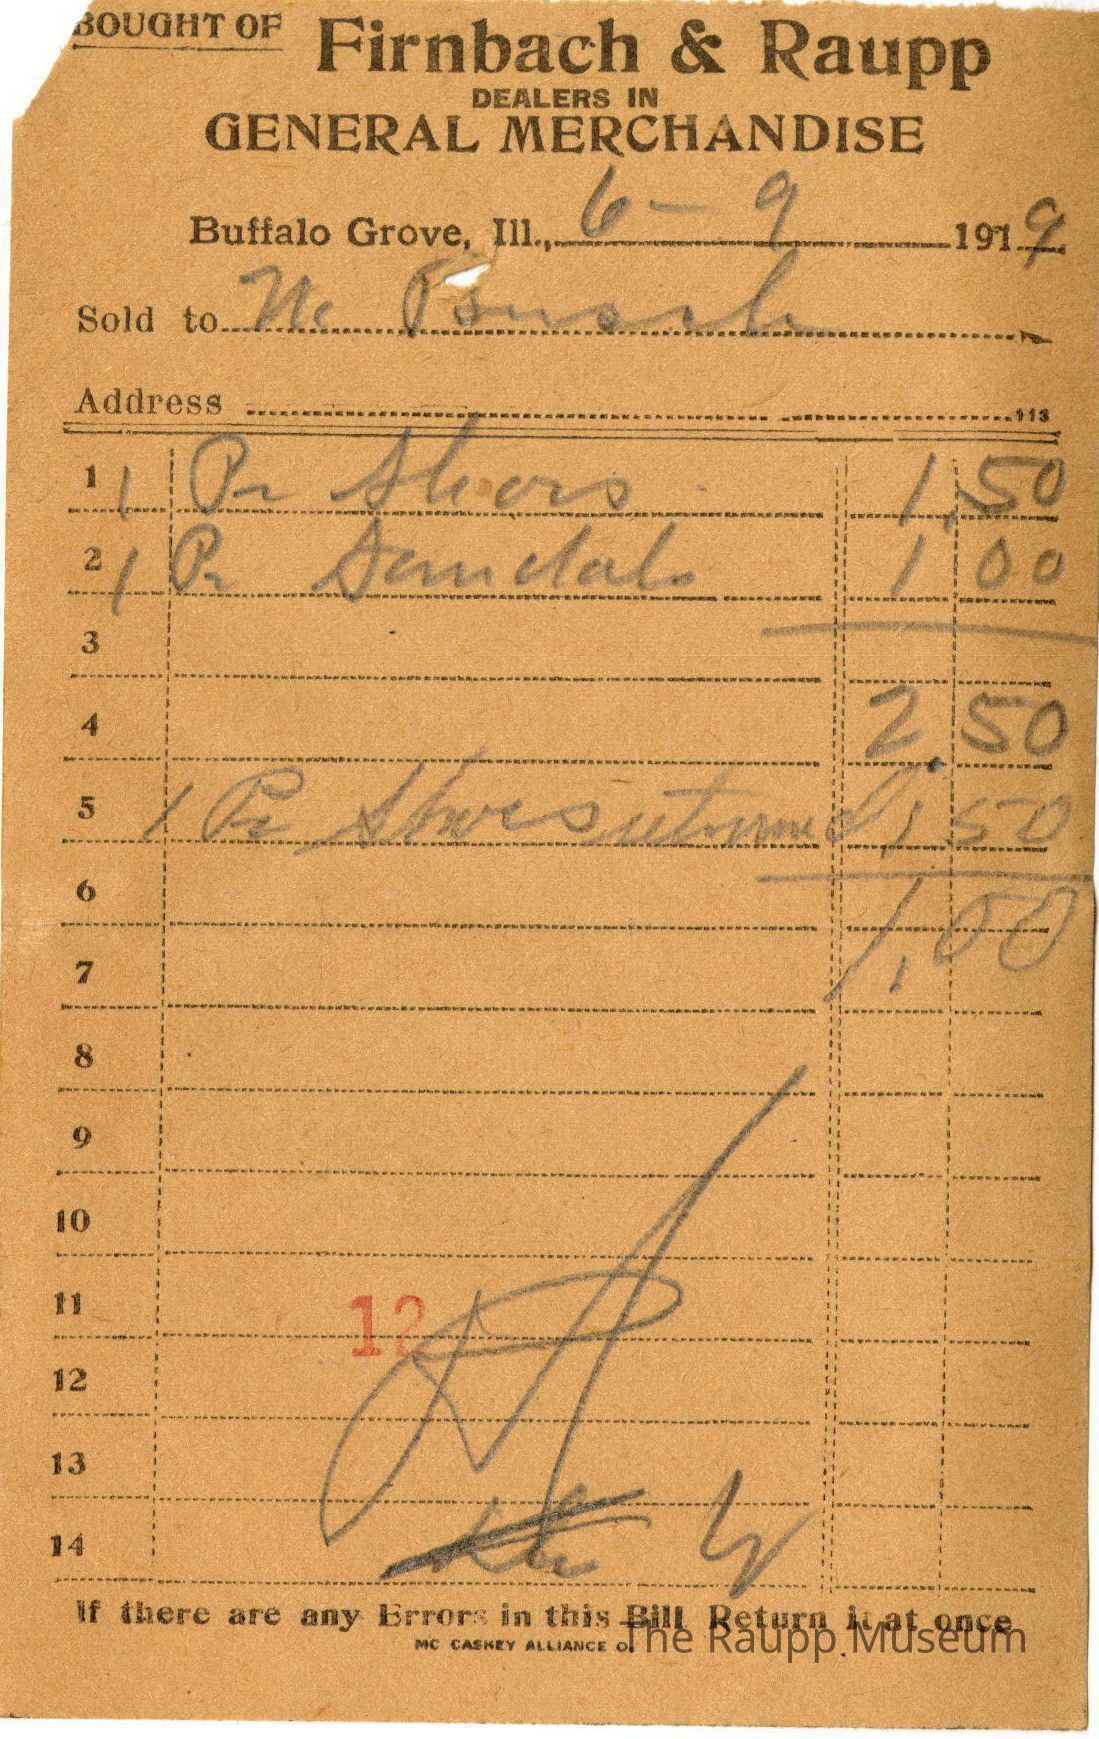 BOUGHT OF Firnbach & Raupp
DEALERS IN
GENERAL MERCHANDISE
Buffalo Grove, Ill., 6-9 1919
Sold to Busch
Address 113
1 1 Pr Shoes 1.50
2 1 Pr Sandals 1 00
3
4 2.50
5 1 Pr Shoes returned 1.50
6 1.00
7
8
9
10
11
12
12
13
14
If there are any Errors in this Bill Return it at once
MC CASKEY ALLIANCE O.
The Raupp Museum